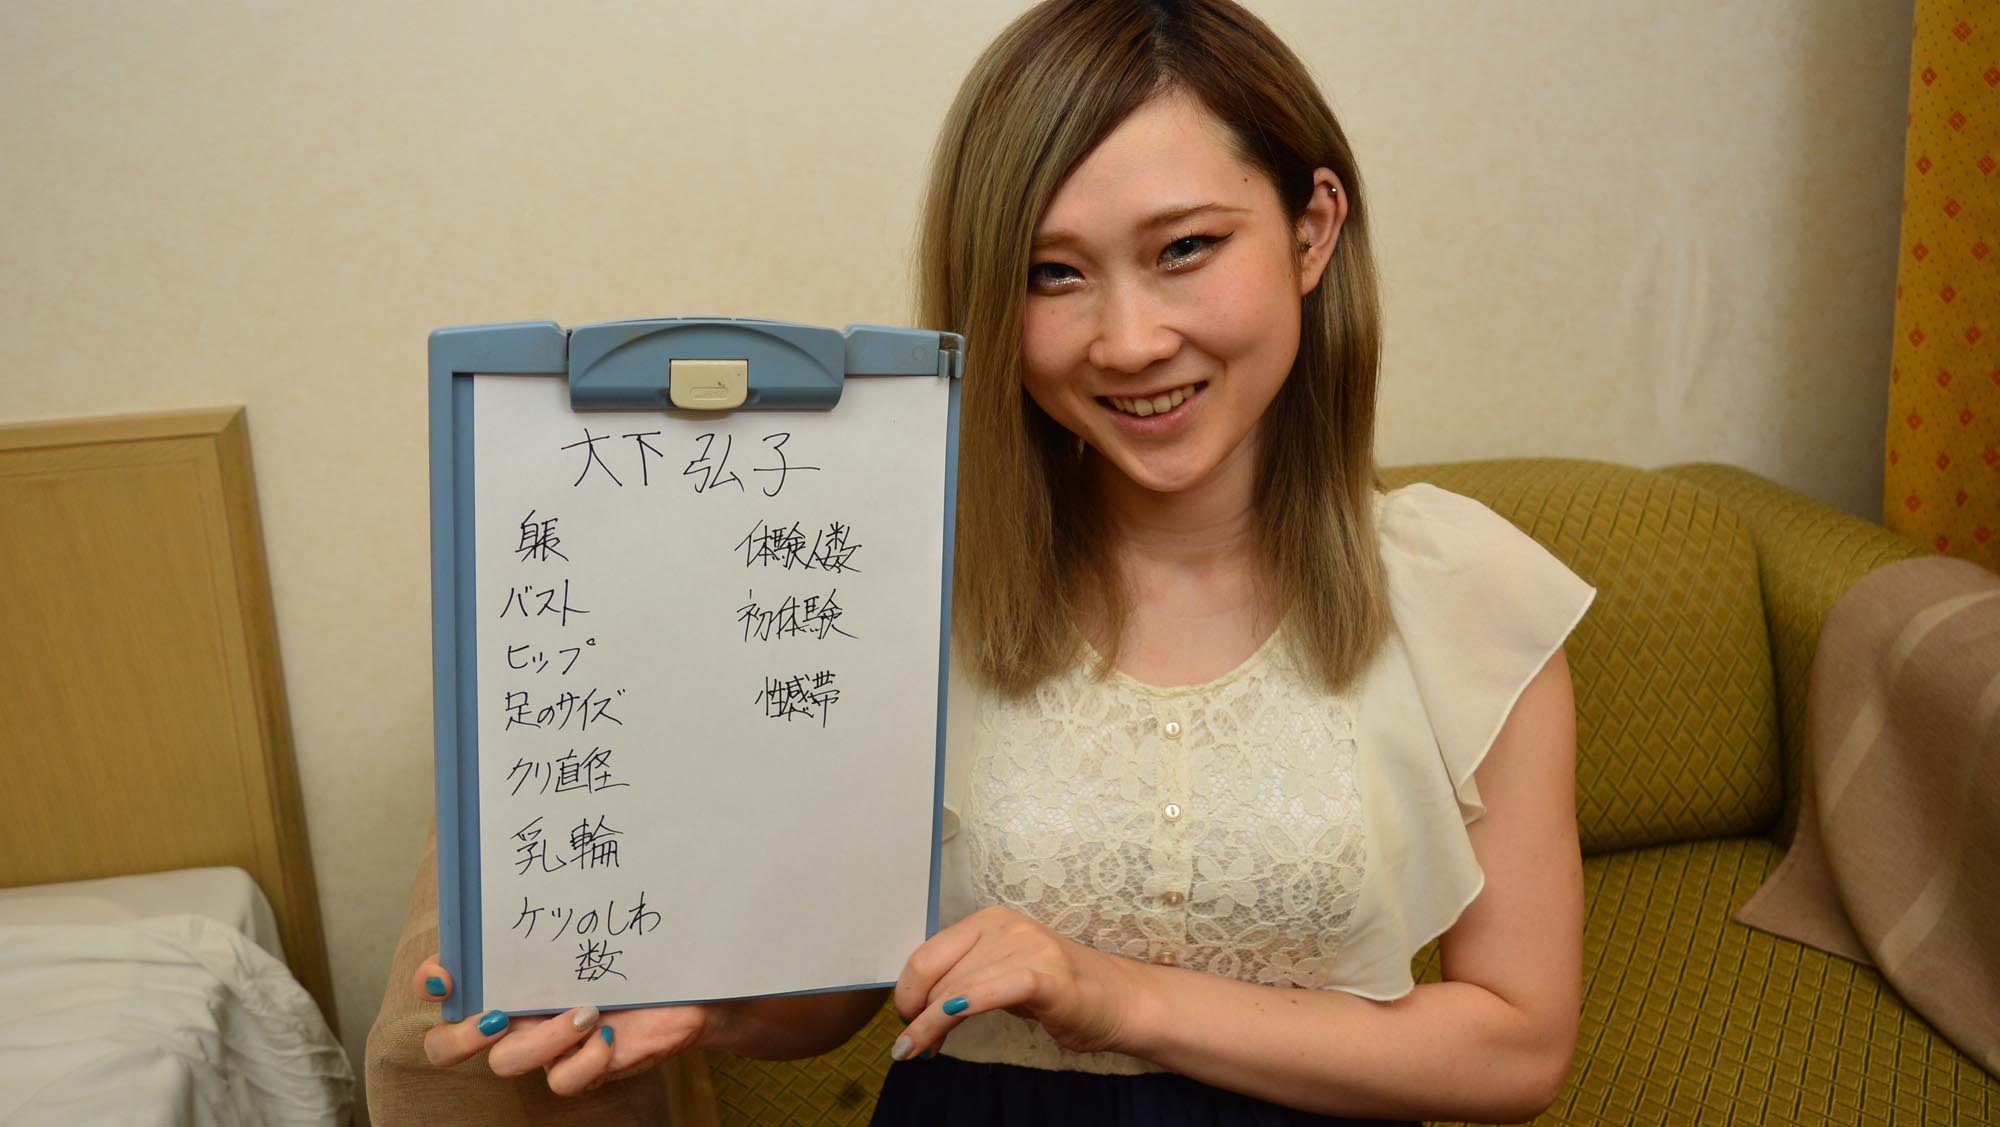 大下 弘子
身長
バスト
ヒップ
足のサイズ
クリ直径
乳輪
ケツのしわ
数
体験人数
初体験
性感帯